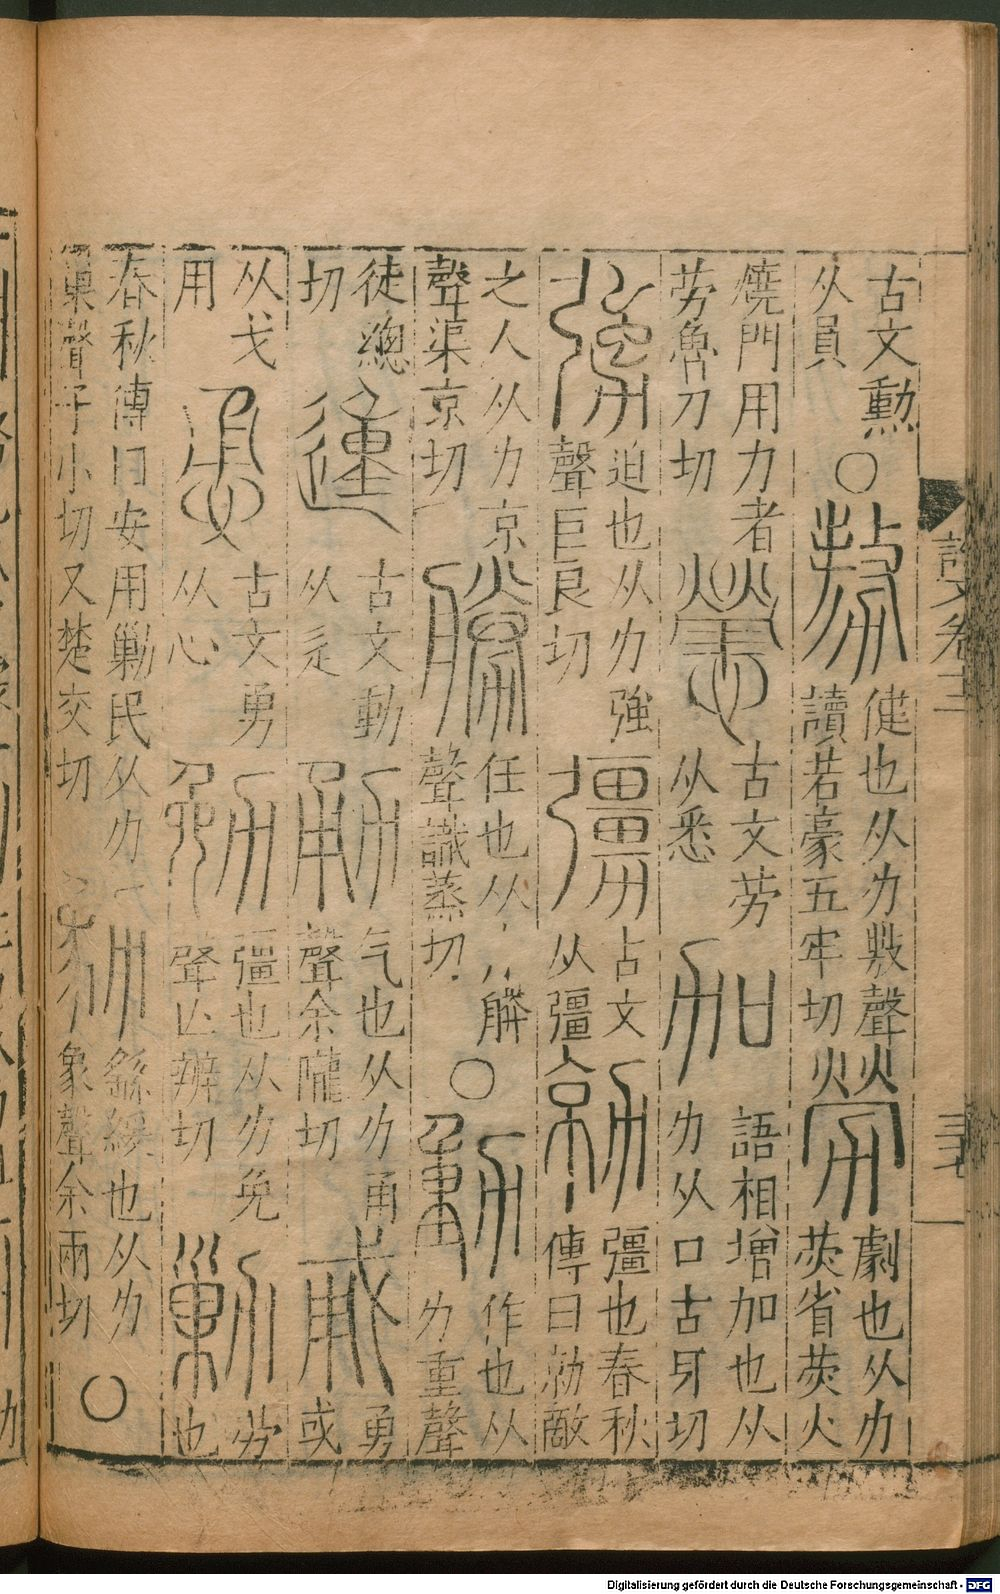 說文卷
古文勳从員○𠢕健也从力敖聲讀若豪五牢切勞劇也从力熒省熒火
燒門用力者勞魯刀切𢥒古文勞从悉加語相增加也从力从口古牙切
勥迫也从力強聲巨良切𠣃古文从彊勍彊也春秋傳曰勍敵
之人从力京聲渠京切勝任也从力朕聲識蒸切○動作也从力重聲
徒總切𨔝古文動从辵勇气也从力甬聲余隴切𢧨勇或
从戈用恿古文勇从心勉彊也从力免聲亡辨切勦勞也
春秋傳曰安用勦民从力巢聲子小切又楚交切勨繇緩也从力象聲余兩切○
Digitalisierung gefördert durch die Deutsche Forschungsgemeinschaft - DFG